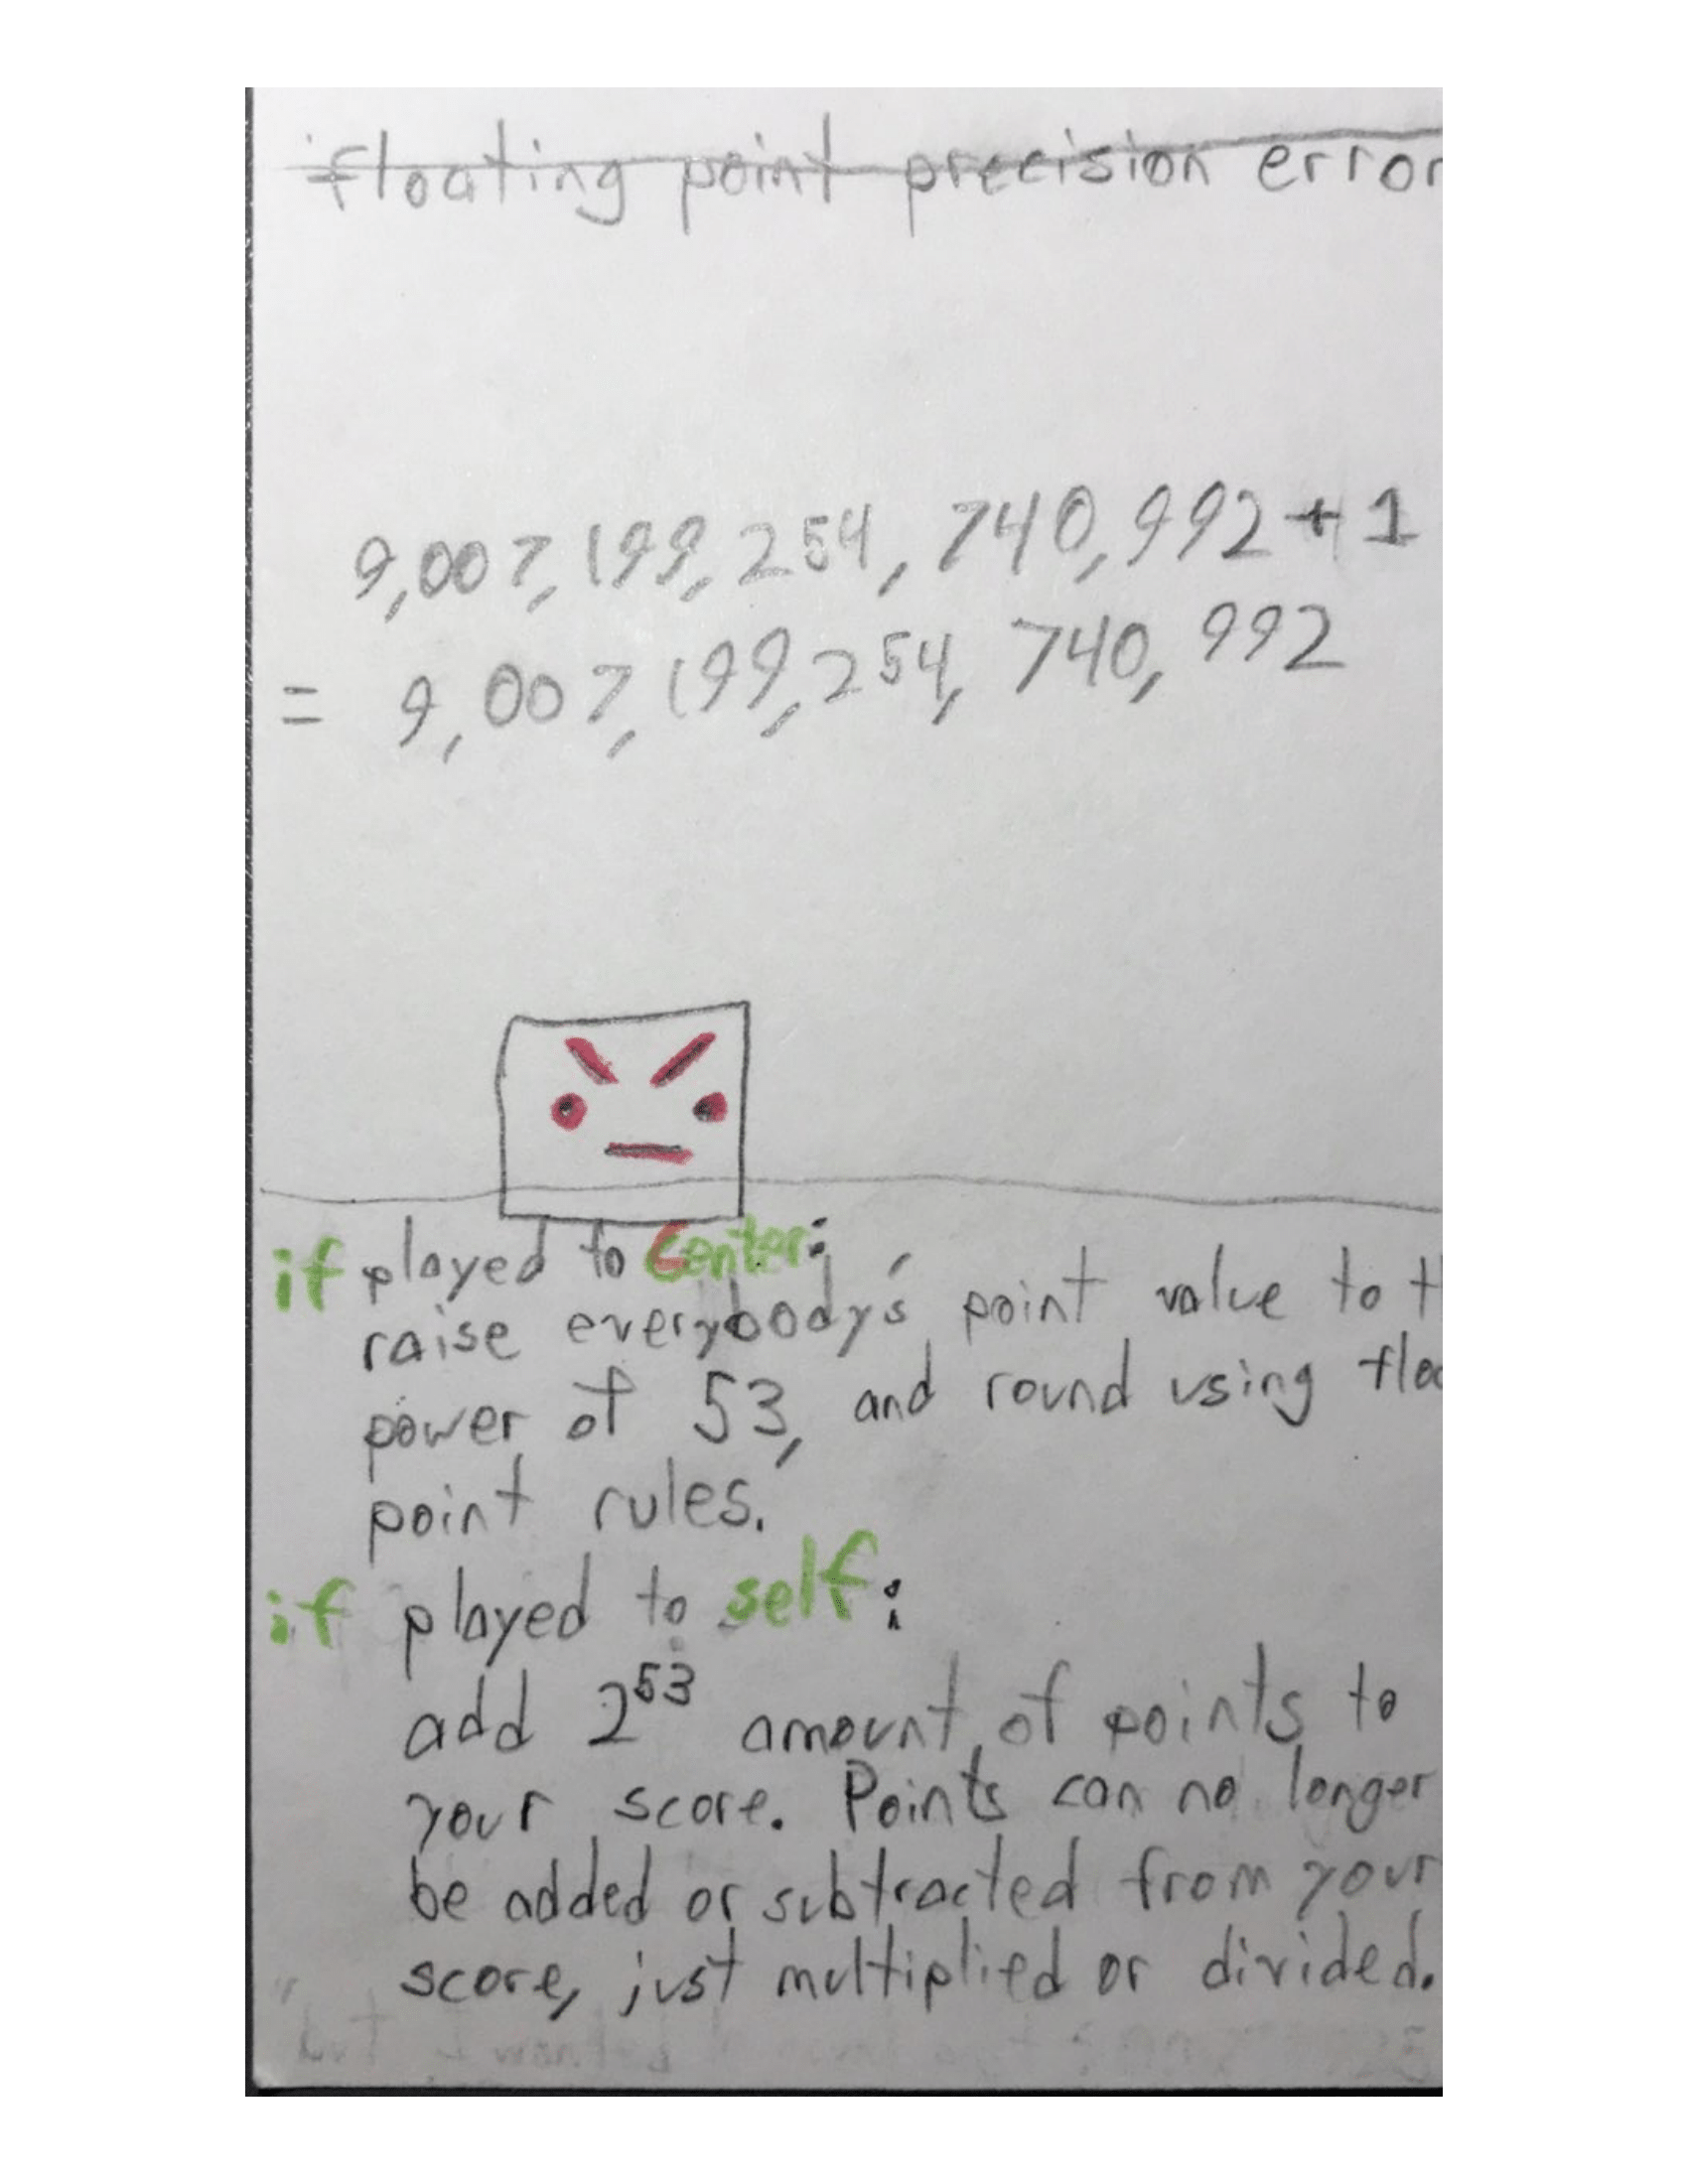 floating point precision error
9,007,199,254,740,992+1
= 9,007,199,254,740,992
if played to Center:
raise everybody's point value to t
power of 53, and round using flo
point rules.
if played to self:
add 2⁵³ amount of points to
your score. Points can no longer
be added or subtracted from your
score, just multiplied or divided.
"but I wanted